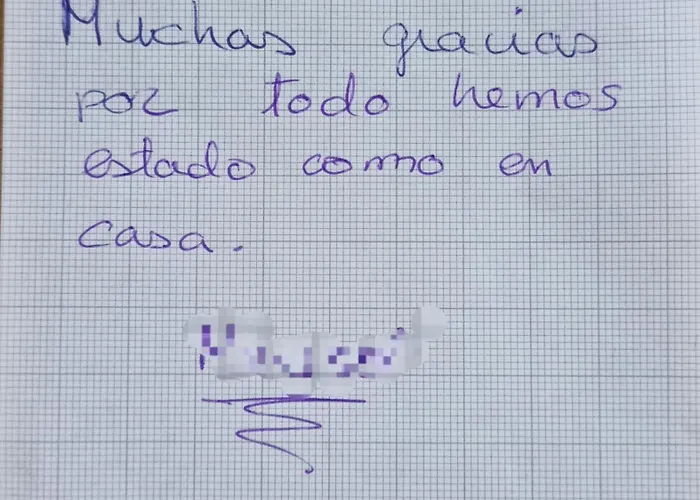 Muchas gracias
por todo hemos
estado como en
casa.